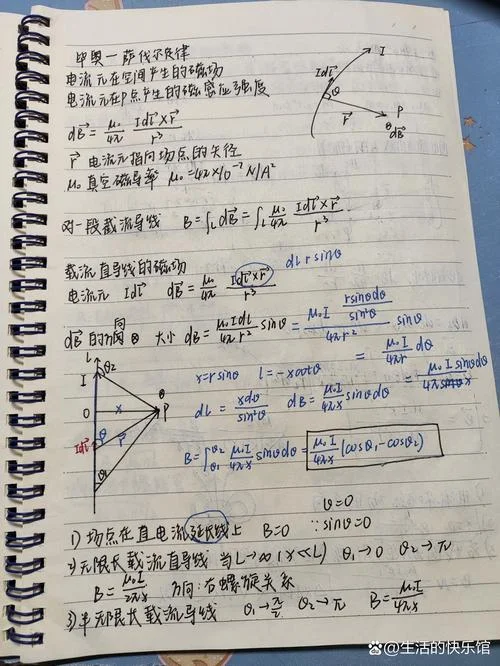 毕奥-萨伐尔定律
电流元在空间产生的磁场
电流元在P点产生的磁感应强度
I
Idl⃗
θ
r⃗
P
⊗
dB⃗
dB⃗ = μ₀/4π Idl⃗×r⃗/r³
r⃗ 电流元指向场点的矢径
μ₀ 真空磁导率 μ₀=4π×10⁻⁷ N/A²
对一段载流导线 B=∫_L dB⃗ = ∫_L μ₀/4π Idl⃗×r⃗/r³
载流直导线的磁场 dl r sinθ
电流元 Idl⃗ dB⃗ = μ₀/4π Idl⃗×r⃗/r³
dB⃗ 的方向 ⊗ 大小 dB = μ₀Idl/4πr² sinθ = μ₀I/4πr² rsinθdθ/sin²θ sinθ
= μ₀I/4πr dθ
l
θ₂
I
O
x
⊗
P
Idl⃗
θ
r⃗
θ₁
x=rsinθ l=-xcotθ = μ₀Isinθdθ
dl = xdθ/sin²θ dB = μ₀I/4πx sinθdθ
B=∫_θ₁^θ₂ μ₀I/4πx sinθdθ = μ₀I/4πx (cosθ₁-cosθ₂)
θ=0
1) 场点在直电流延长线上 B=0 ∵sinθ=0
2) 无限长载流直导线 当L→∞(x≪L) θ₁→0 θ₂→π
B = μ₀I/2πx 方向:右螺旋关系
3) 半无限长载流导线 θ₁→π/2 θ₂→π B=μ₀I/4πx
@生活的快乐馆